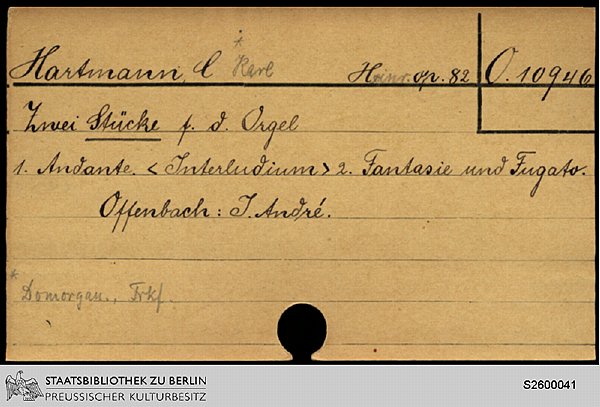 *
Hartmann, C Karl Heinr. op. 82 O. 10946
Zwei Stücke f. d. Orgel
1. Andante. < Interludium > 2. Fantasie und Fugato.
Offenbach: J. André.
*
Domorgan., Frkf.
STAATSBIBLIOTHEK ZU BERLIN
PREUSSISCHER KULTURBESITZ
S2600041